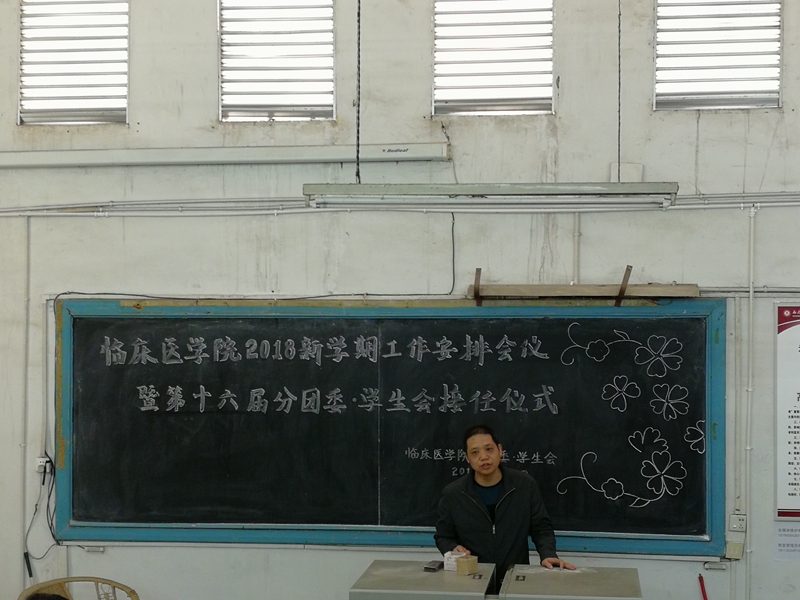 临床医学院2018新学期工作安排会仪
暨第十六届分团委·学生会接任仪式
临床医学院 委·学生会
201